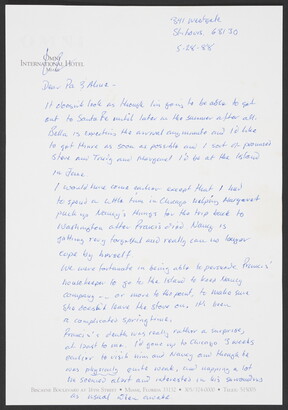 341 Westgate
St. Louis 63130
5-28-88
OMNI
INTERNATIONAL HOTEL
MIAMI
Dear Pa & Aline -
It doesn't look as though I'm going to be able to get
out to Santa Fe until later in the summer after all.
Bella is expecting the arrival any minute and I'd like
to get there as soon as possible and I sort of promised
Steve and and Margaret I'd be at the Island
in June.
I would have come earlier except that I had
to spend a little time in Chicago helping Margaret
pack up Nancy's things for the trip back to
Washington after Francis died. Nancy is
getting very forgetful and really can no longer
cope by herself.
We were fortunate in being able to persuade Francis'
housekeeper to go to the Island to keep Nancy
company - or more to the point, to make sure
she doesn't leave the stove on. It's been
a complicated springtime.
Francis's death was really rather a surprise,
at least to me. I'd gone up to Chicago 3 weeks
earlier to visit him and Nancy and though he
was physically quite weak, and napping a lot
he seemed alert and interested in his surroundings
as usual when awake.
BISCAYNE BOULEVARD AT 16TH STREET MIAMI, FLORIDA 33132